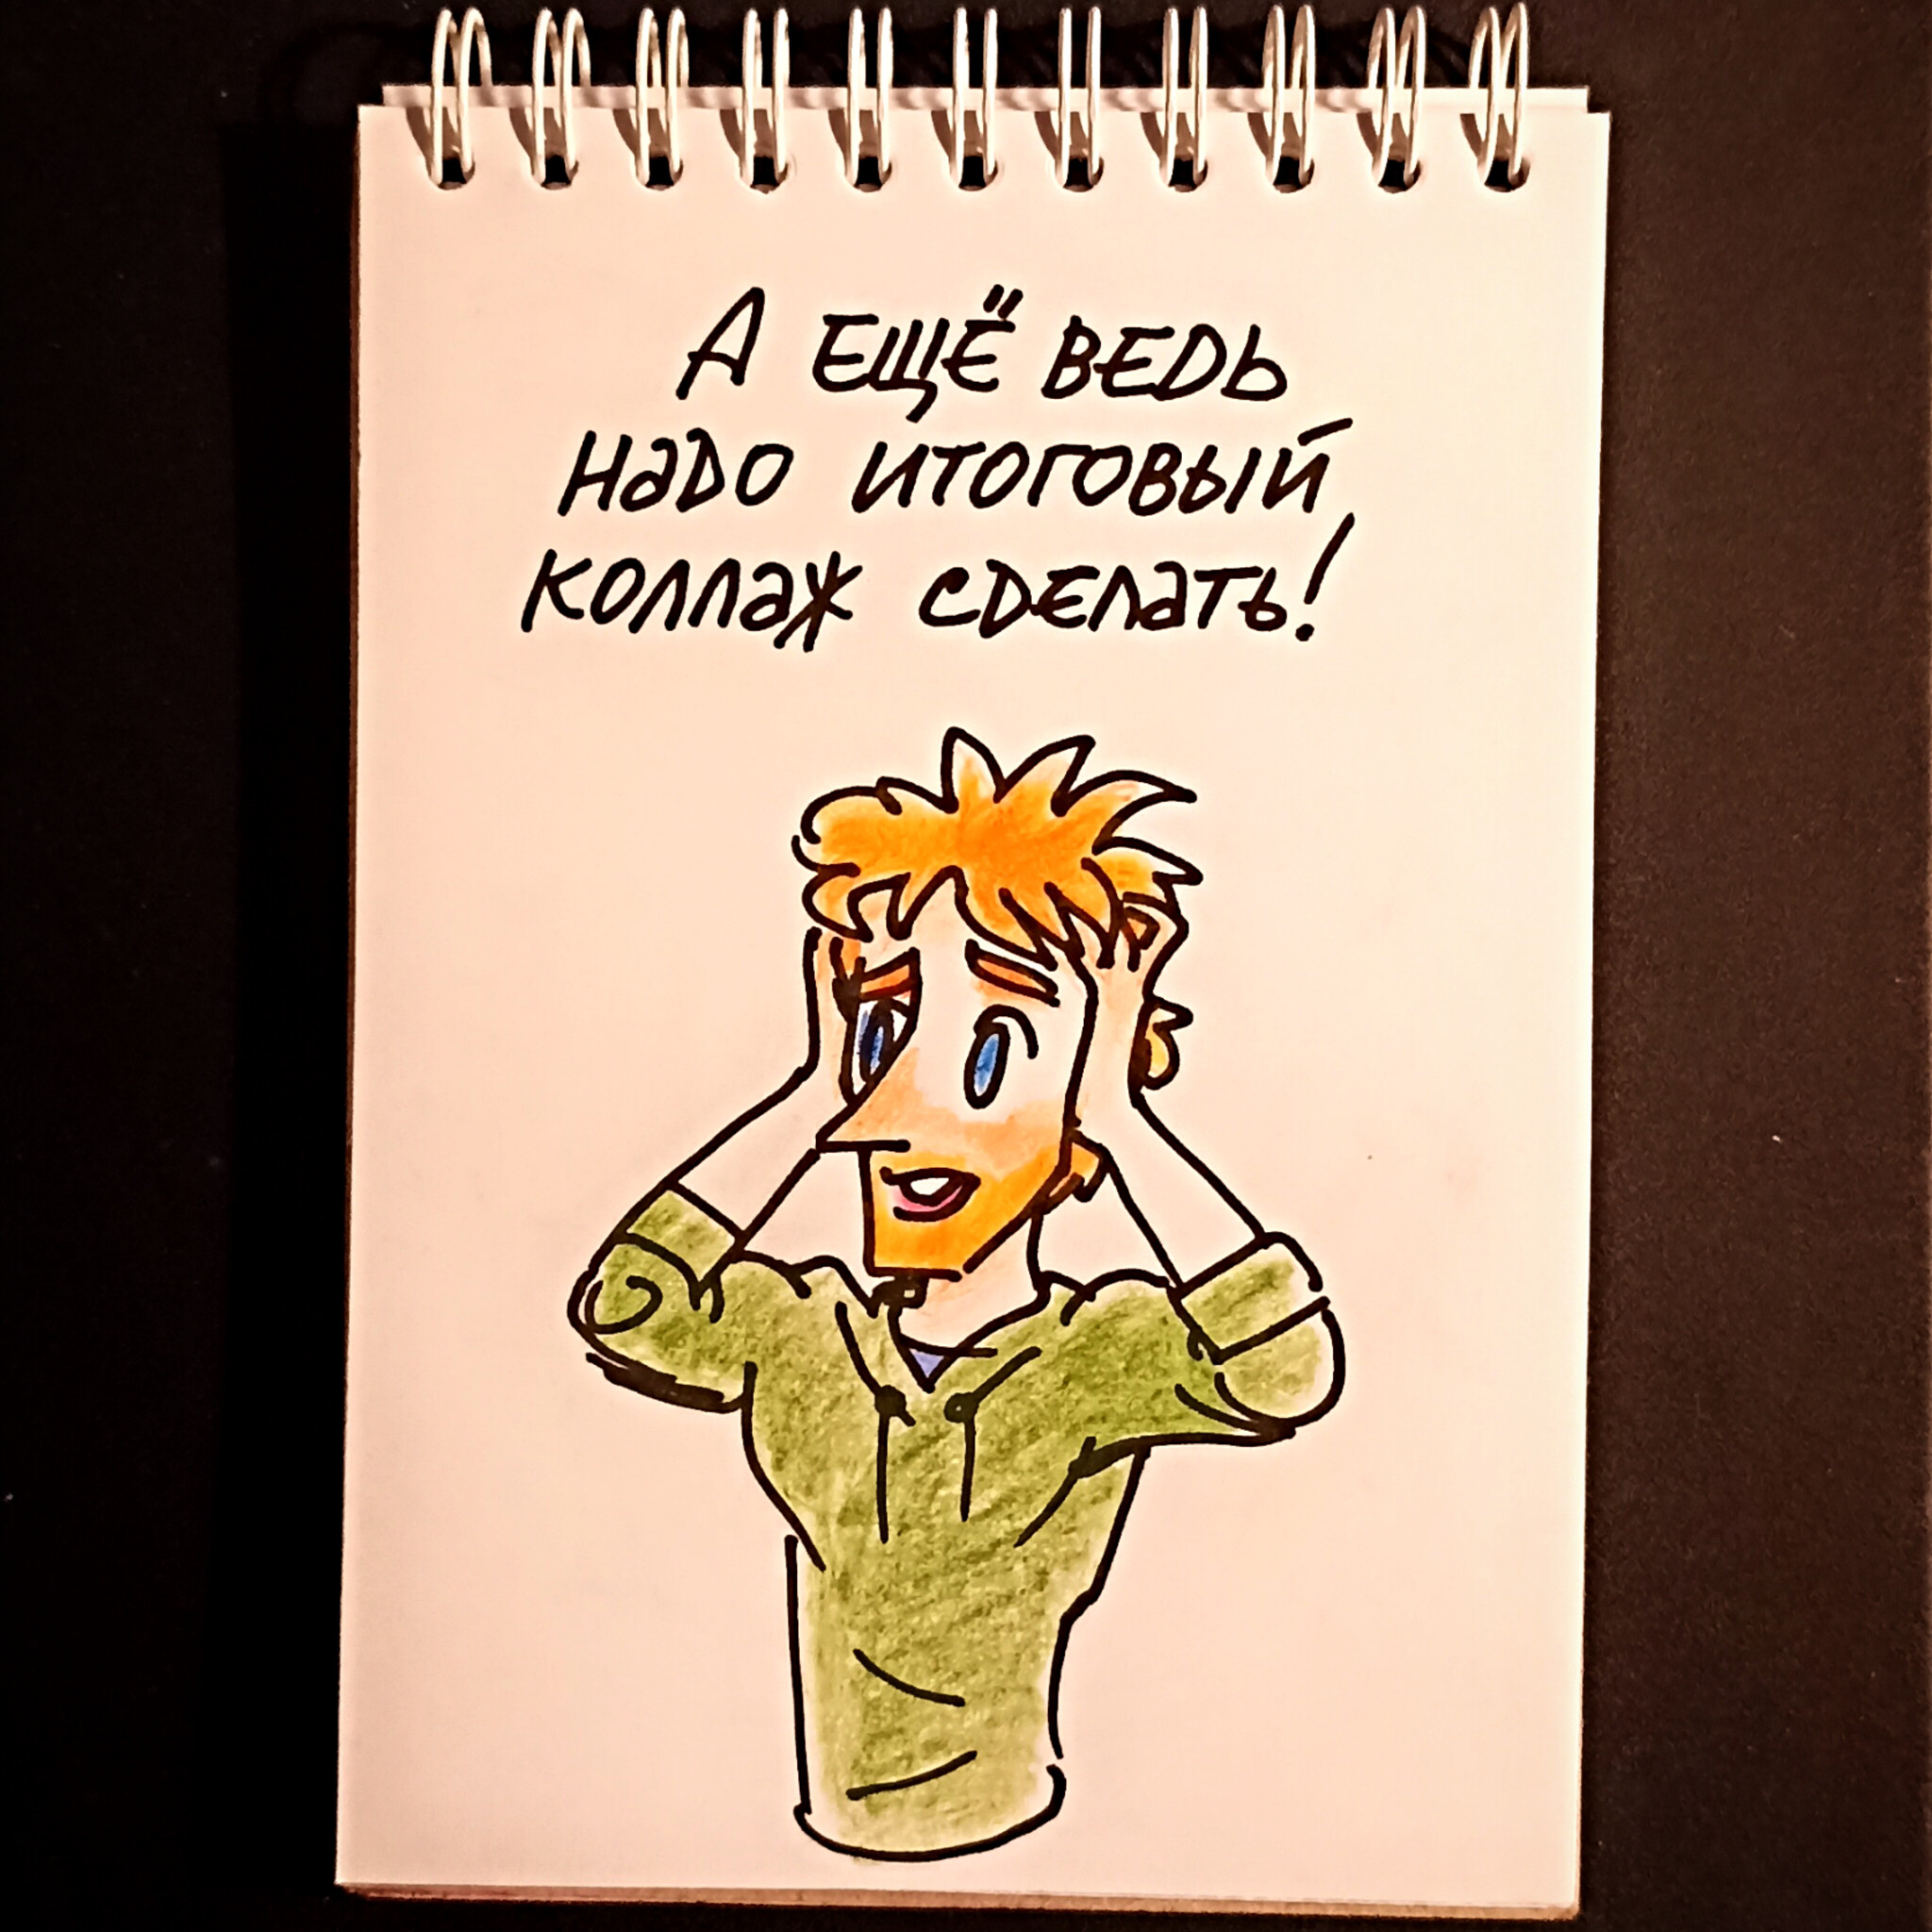 А ЕЩЁ ВЕДЬ
НАДО ИТОГОВЫЙ
КОЛЛАЖ СДЕЛАТЬ!